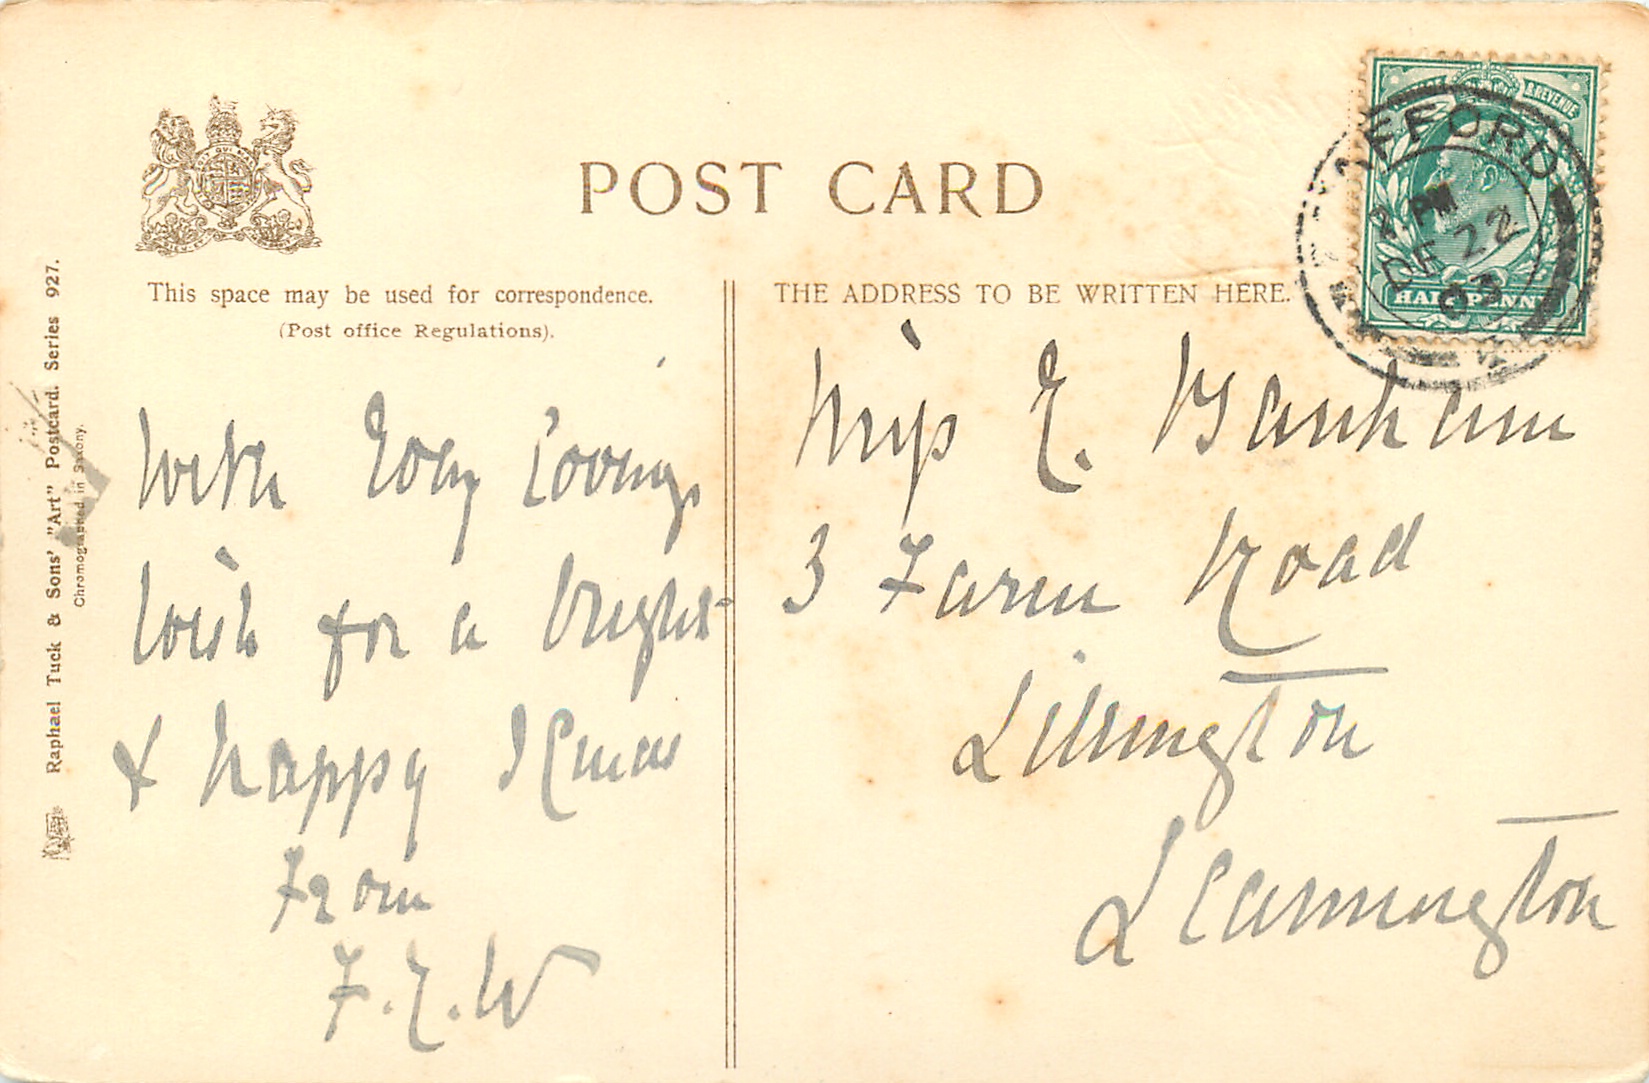 POST CARD
This space may be used for correspondence.
(Post office Regulations).
THE ADDRESS TO BE WRITTEN HERE.
With Evy Loving
Wish for a bright
& happy Xmas
From
F.E.W
Miss E. Banham
3 Farm Road
Lillington
Leamington
& REVENUE
HALFPENNY
AFFORD
2 PM
DE 22
03
Raphael Tuck & Sons' "Art" Postcard. Series 927.
Chromographed in Saxony.